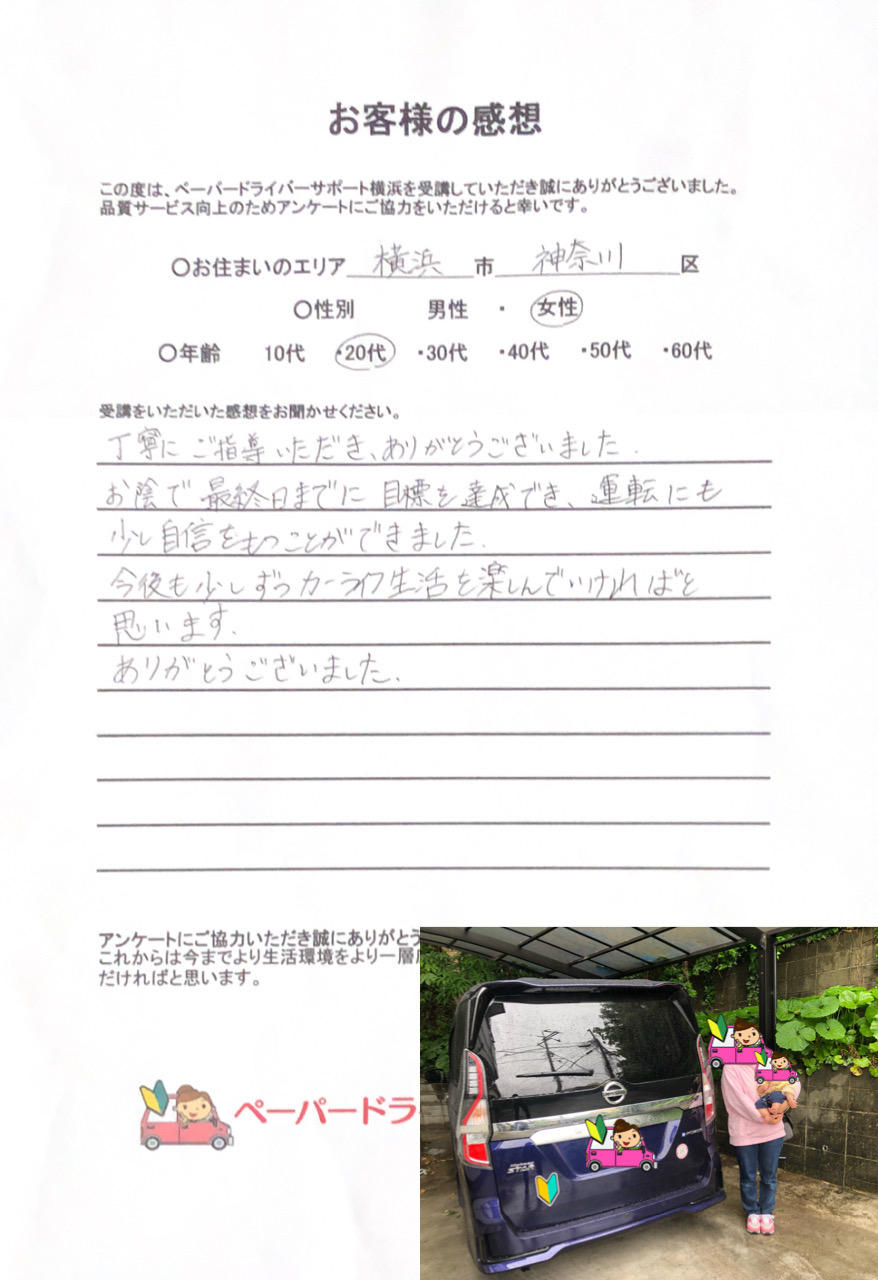 お客様の感想
この度は、ペーパードライバーサポート横浜を受講していただき誠にありがとうございました。
品質サービス向上のためアンケートにご協力をいただけると幸いです。
〇お住まいのエリア 横浜 市 神奈川 区
〇性別 男性 ・ 女性
〇年齢 10代 ・20代 ・30代 ・40代 ・50代 ・60代
受講をいただいた感想をお聞かせください。
丁寧にご指導いただき、ありがとうございました.
お陰で最終日までに目標を達成でき、運転にも
少し自信をもつことができました.
今後も少しずつカーライフ生活を楽しんでいければと
思います.
ありがとうございました.
アンケートにご協力いただき誠にありがとう
これからは今までより生活環境をより一層
だければと思います。
ペーパードラ